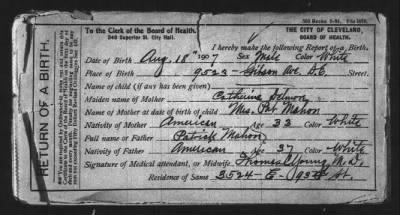 300 Books 8-31, File 1019.
To the Clerk of the Board of Health.
248 Superior St. City Hall.
THE CITY OF CLEVELAND,
BOARD OF HEALTH.
I hereby make the following Report of a Birth.
Date of Birth Aug. 18th 1907 Sex Male Color White
Place of Birth 9523 Gibson Ave. S.E. Street.
Name of child (if any has been given)
Maiden name of Mother Catherine
Name of Mother at date of birth of child Mrs. Pat. Mahon
Nativity of Mother American Age 33 Color White
Full name of Father Patrick Mahon
Nativity of Father American Age 37 Color White
Signature of Medical attendant, or Midwife Thomas C. Young, M.D.
Residence of Same 3524 - E - 93rd St.
RETURN OF A BIRTH.